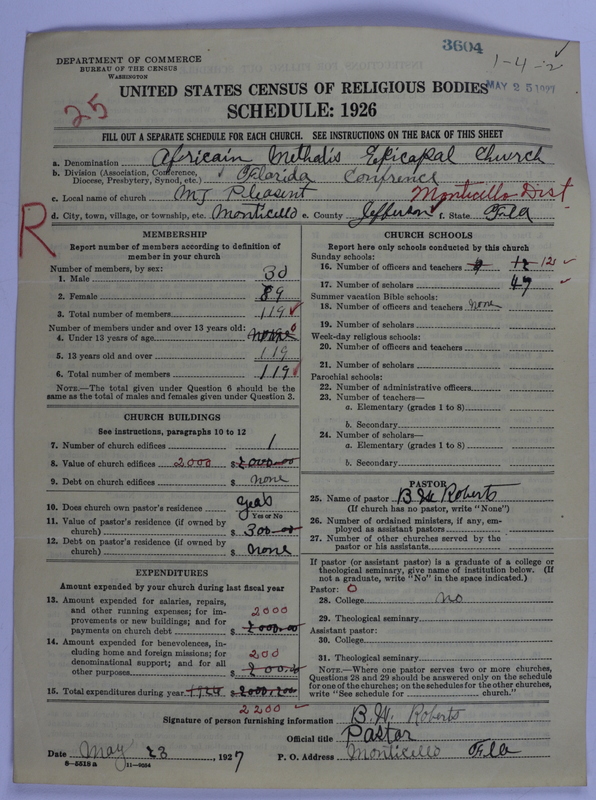 3604
1-4-2
DEPARTMENT OF COMMERCE
BUREAU OF THE CENSUS
WASHINGTON
MAY 25 1927
25
UNITED STATES CENSUS OF RELIGIOUS BODIES
SCHEDULE: 1926
FILL OUT A SEPARATE SCHEDULE FOR EACH CHURCH. SEE INSTRUCTIONS ON THE BACK OF THIS SHEET
a. Denomination Africain Methdis Epicapal Church
b. Division (Association, Conference, Diocese, Presbytery, Synod, etc.) Florida Confrence
c. Local name of church MT Pleasent Monticello Dist
d. City, town, village, or township, etc. Monticello e. County Jefferson f. State Fla
R
MEMBERSHIP
Report number of members according to definition of
member in your church
Number of members, by sex:
1. Male 30
2. Female 89
3. Total number of members 119
Number of members under and over 13 years old:
4. Under 13 years of age none 0
5. 13 years old and over 119
6. Total number of members 119
NOTE.—The total given under Question 6 should be
same as the total of males and females given under Question 3.
CHURCH BUILDINGS
See instructions, paragraphs 10 to 12
7. Number of church edifices 1
8. Value of church edifices 2000 $ 2000 00
9. Debt on church edifices $ none
10. Does church own pastor's residence yeas
Yes or No
11. Value of pastor's residence (if owned by
church) $ 300 00
12. Debt on pastor's residence (if owned by
church) $ none
EXPENDITURES
Amount expended by your church during last fiscal year
13. Amount expended for salaries, repairs,
and other running expenses; for im-
provements or new buildings; and for 2000
payments on church debt $ 2000 00
14. Amount expended for benevolences, in-
cluding home and foreign missions; for
denominational support; and for all 200
other purposes $ 200 00
15. Total expenditures during year 1926 $ 2000.200
2200
CHURCH SCHOOLS
Report here only schools conducted by this church
Sunday schools:
16. Number of officers and teachers 9 12 12
17. Number of scholars 47
Summer vacation Bible schools:
18. Number of officers and teachers none
19. Number of scholars
Week-day religious schools:
20. Number of officers and teachers
21. Number of scholars
Parochial schools:
22. Number of administrative officers
23. Number of teachers—
a. Elementary (grades 1 to 8)
b. Secondary
24. Number of scholars—
a. Elementary (grades 1 to 8)
b. Secondary
PASTOR
25. Name of pastor B W Roberts
(If church has no pastor, write "None")
26. Number of ordained ministers, if any, em-
ployed as assistant pastors
27. Number of other churches served by the
pastor or his assistants
If pastor (or assistant pastor) is a graduate of a college or
theological seminary, give name of institution below. (If
not a graduate, write "No" in the space indicated.)
Pastor: 0
28. College no
29. Theological seminary
Assistant pastor:
30. College
31. Theological seminary
NOTE.—Where one pastor serves two or more churches,
Questions 28 and 29 should be answered only on the schedule
for one of the churches; on the schedules for the other churches,
write "See schedule for church."
Signature of person furnishing information B. W. Roberts
Official title Pastor
Date May 23, 1927 P. O. Address Monticello Fla
8-5518 a 11-9554